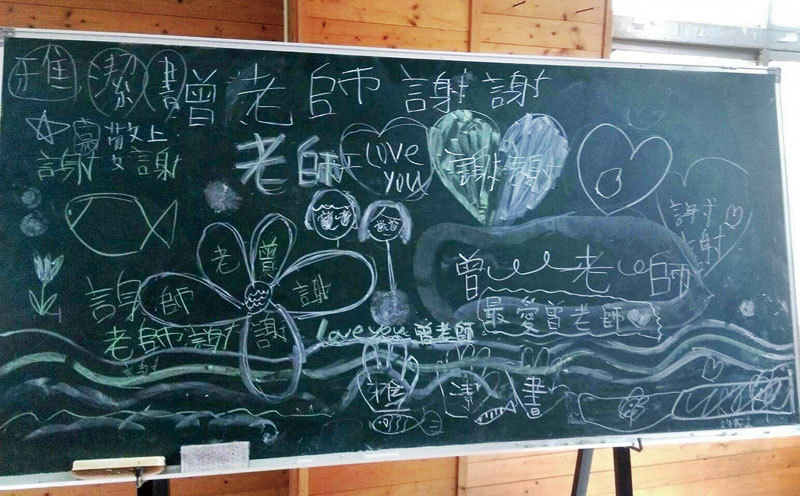 雅潔書
曾老師謝謝
敬上
謝謝
老師
I Love you
謝謝
謝謝
老師曾謝謝
謝
曾老師
最愛曾老師
老師謝謝
Love you 曾老師
雅潔書